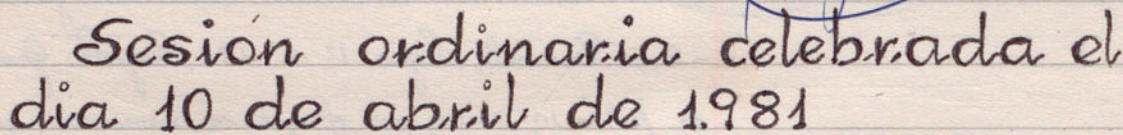 Sesión ordinaria celebrada el
dia 10 de abril de 1.981